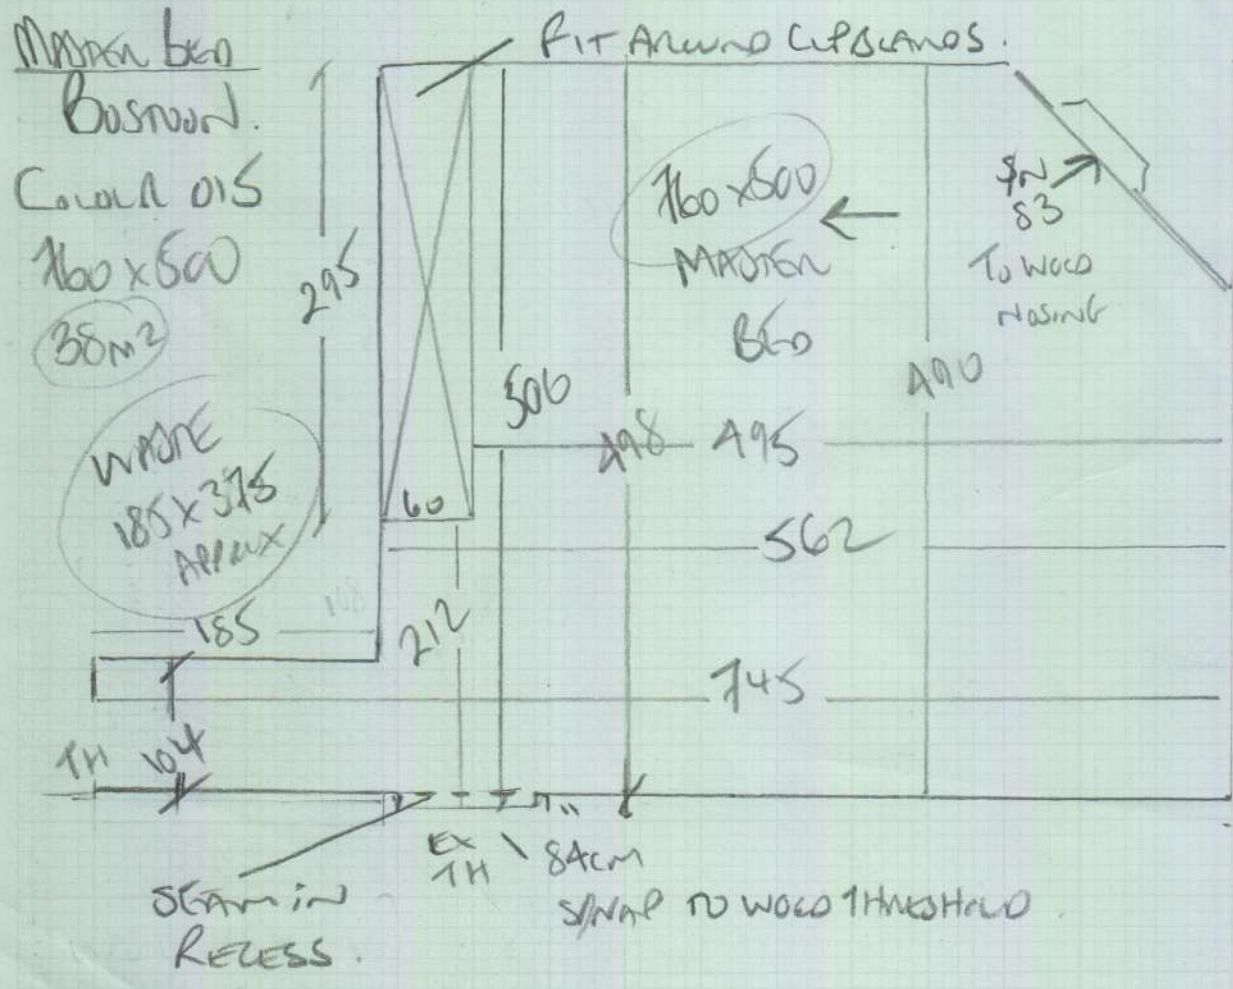 MASTER BED
BOSTOON.
COLOUR 015
760 x 500
38M²
WASTE
185 x 375
APPROX
FIT AROUND CUPBOARDS.
295
760 x 500
MASTER
BED
S/N
83
TO WOOD
NOSING
490
506
498
495
60
562
185
212
745
TH
104
EX
TH
84CM
S/NAP TO WOOD THRESHOLD.
SEAM IN
RECESS.